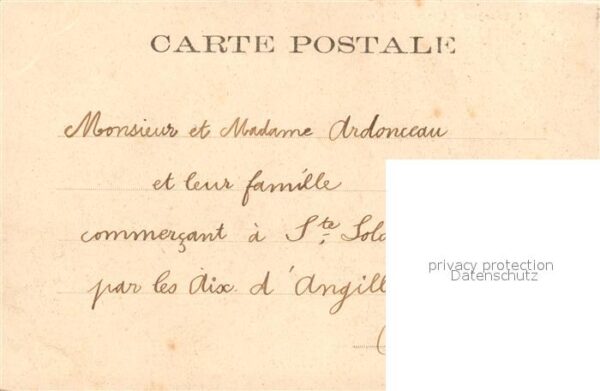 CARTE POSTALE
Monsieur et Madame Ardonceau
et leur famille
commerçant à Ste Sol
par les Aix d'Angill
privacy protection
Datenschutz